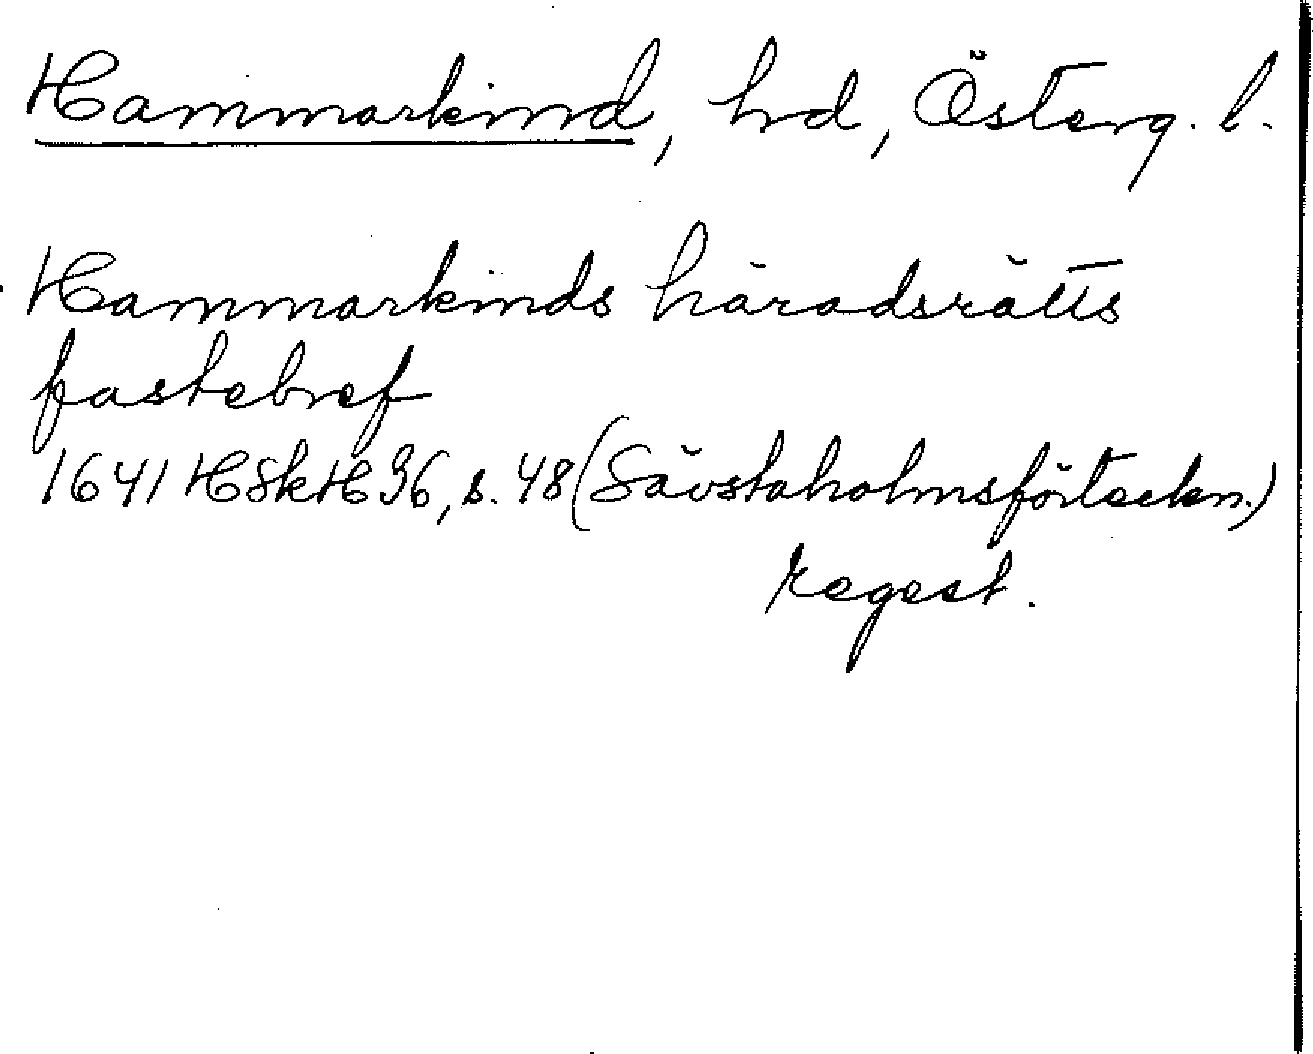 Hammarkind, hd, Österg. l.
Hammarkinds häradsrätts
fastebref
1641 HSkH 36, s. 48 (Sävstaholmsförteckn.)
regest.